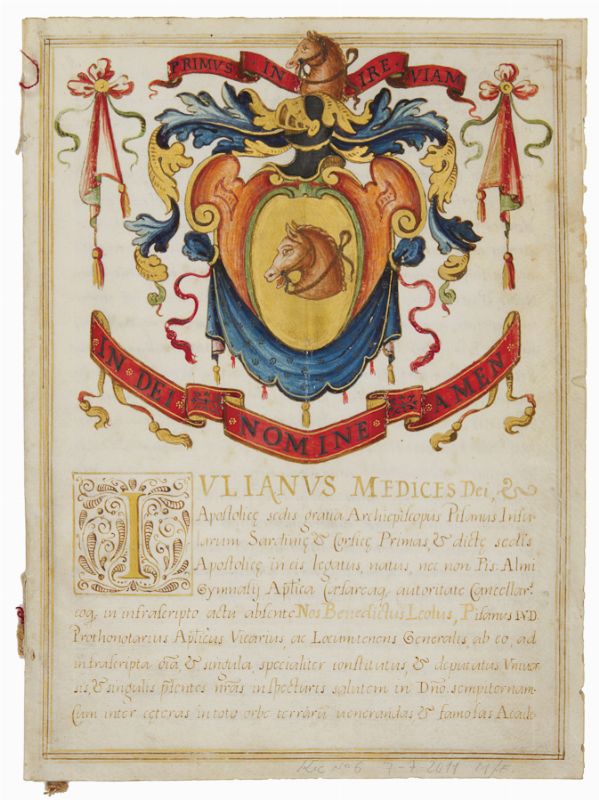 PRIMVS IN IRE VIAM
IN DEI NOMINE AMEN
IVLIANVS MEDICES Dei, &
Apostolicę sedis gratia Archiepĩscopus Pisanus Insu-
larum Sardinię & Corsicę Primas, & dictę sedis
Apostolicę in eis legatus, natus, nec non Pis: Almi
Gymnasij Aplica Cæsareaq. autoritate Cancellar.
eoq. in infrascripto actu absente Nos Benedictus Leolus, Pisanus IVD
Prothonotarius Aplicus Vicarius, ac Locumtenens Generalis, ab eo, ad
infrascripta oĩa, & singula, specialiter constitutus, & deputatus Vniuer-
sis, & singulis pñtentes nr̃as inspecturis salutem in Dño sempiternam-
Cum inter ceteras in toto orbe terrarũ uenerandas & famosas Acade
7-7-2011